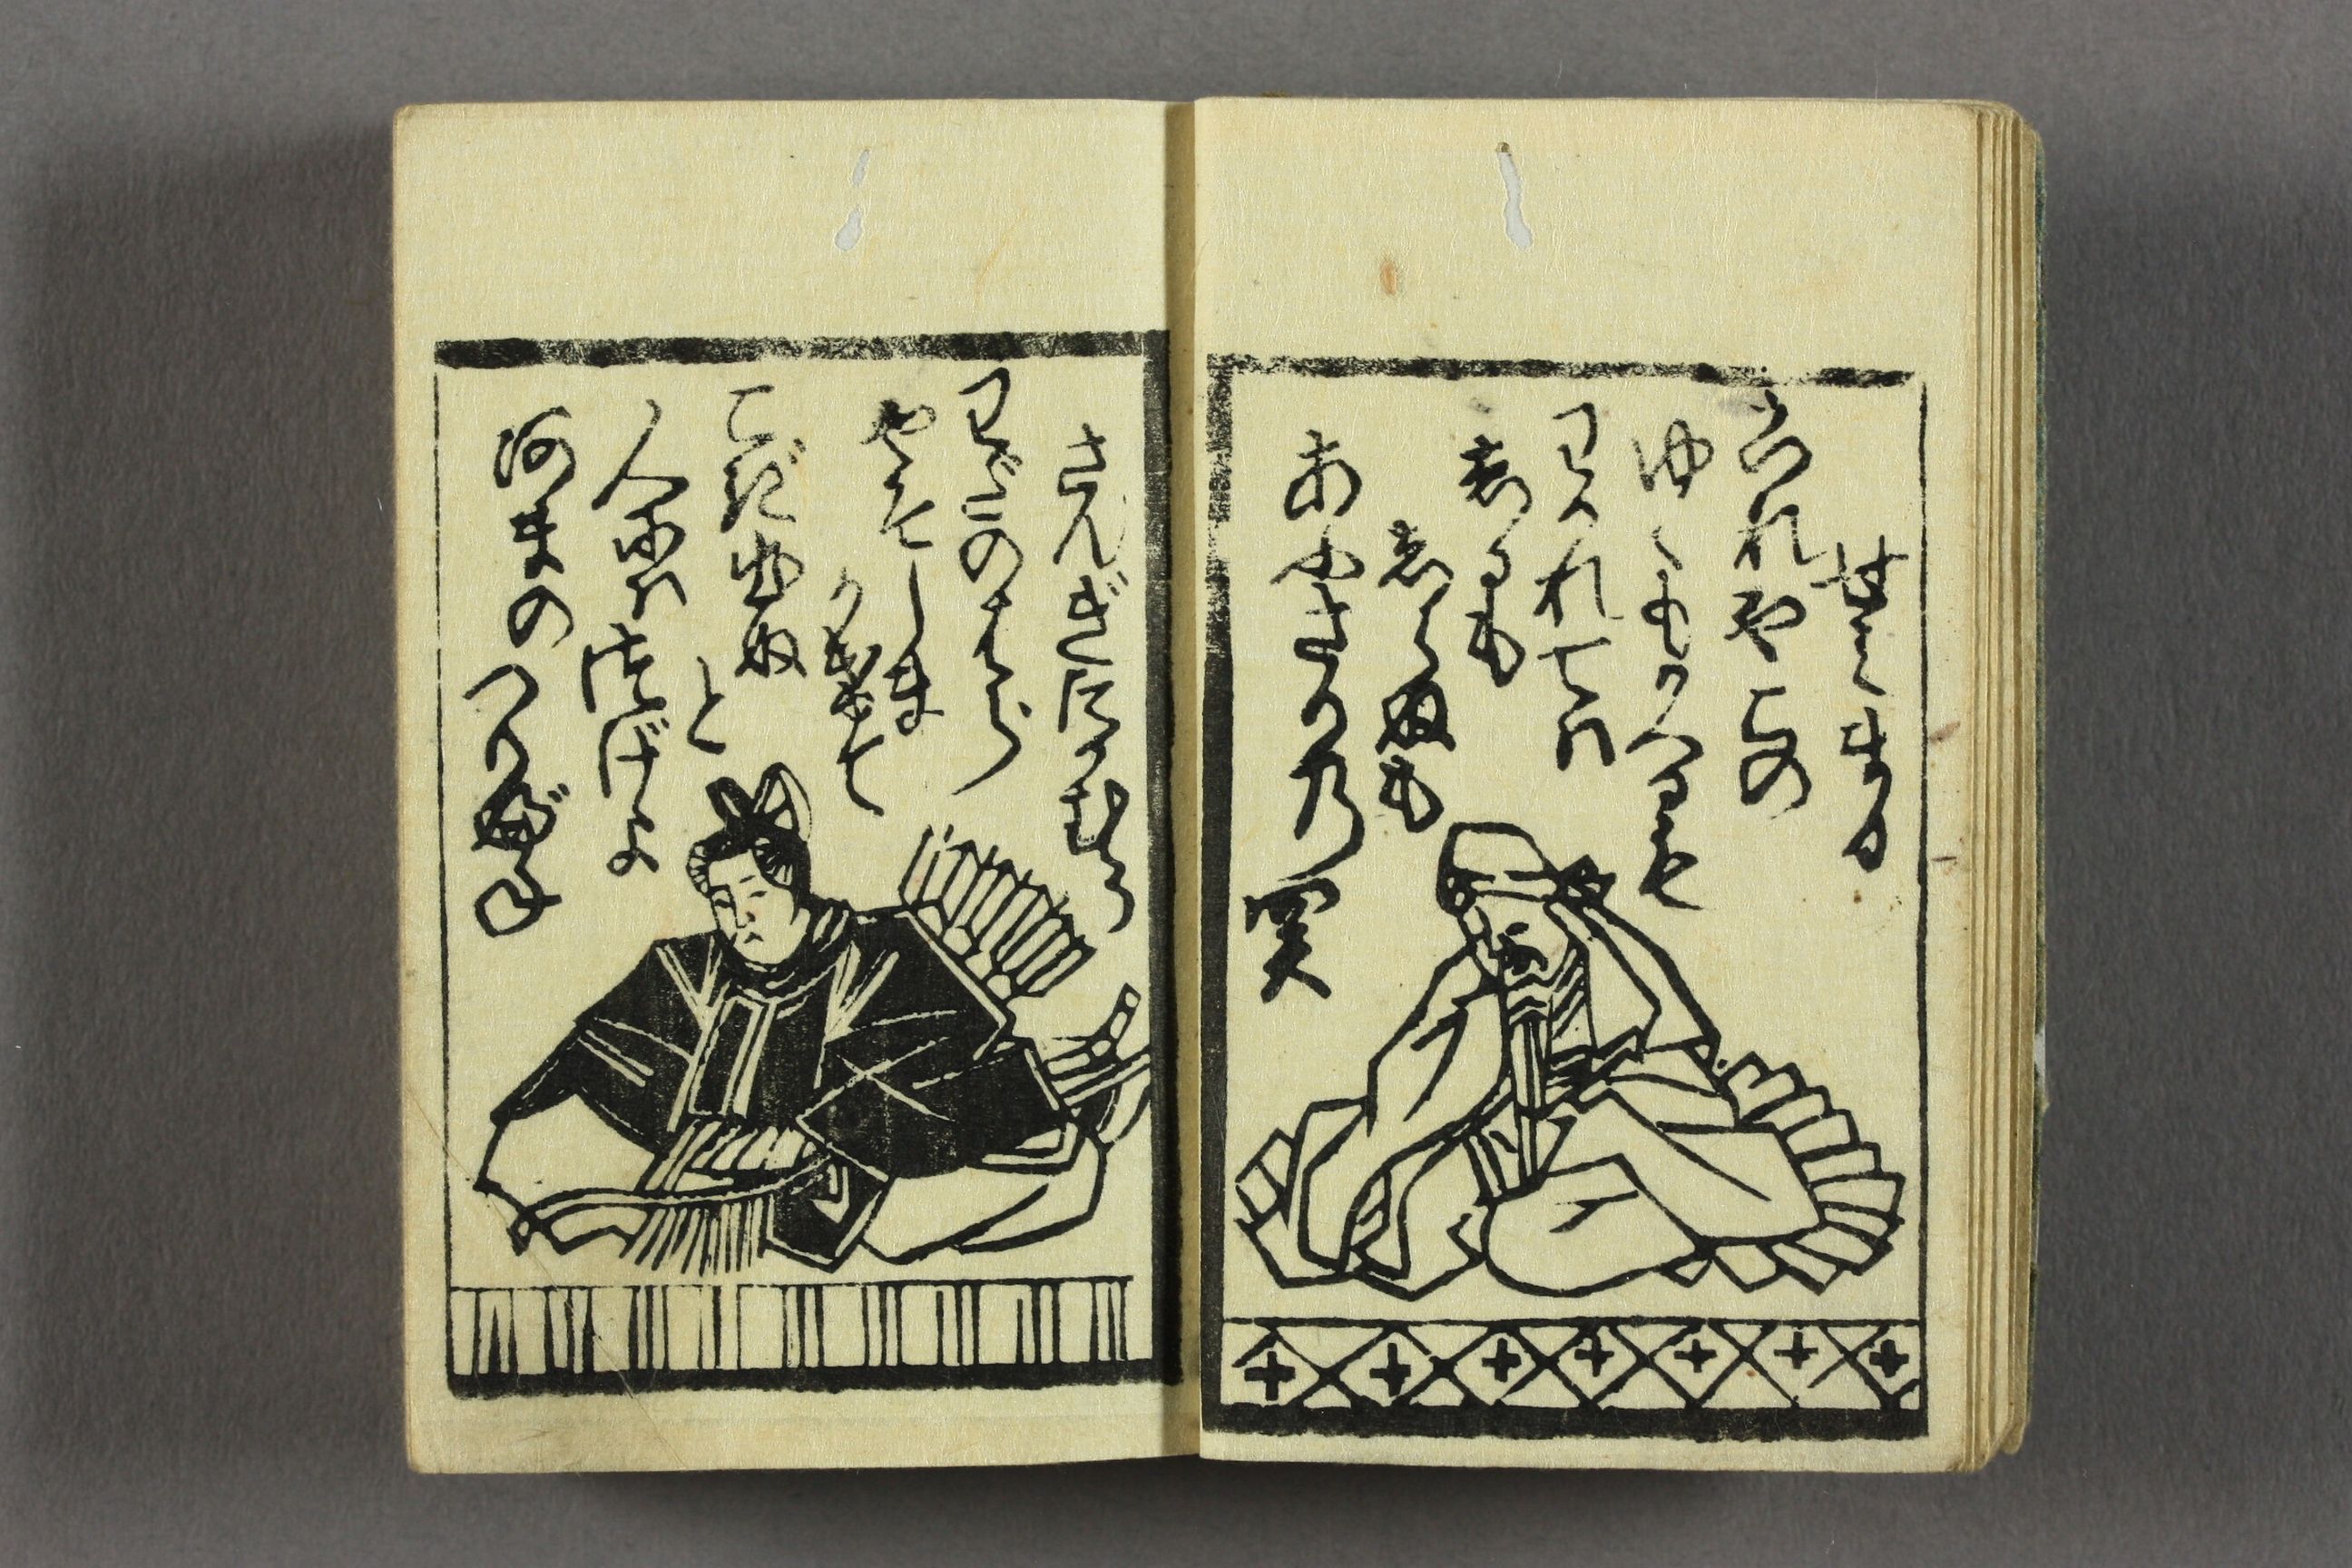 せみまる
これやこの
ゆくもかへるも
わかれては
しるも
しらぬも
あふさかの関
さんぎたかむら
わだのはら
やそしま
かけて
こぎ出ぬ
と
人にはつげよ
あまのつりぶね